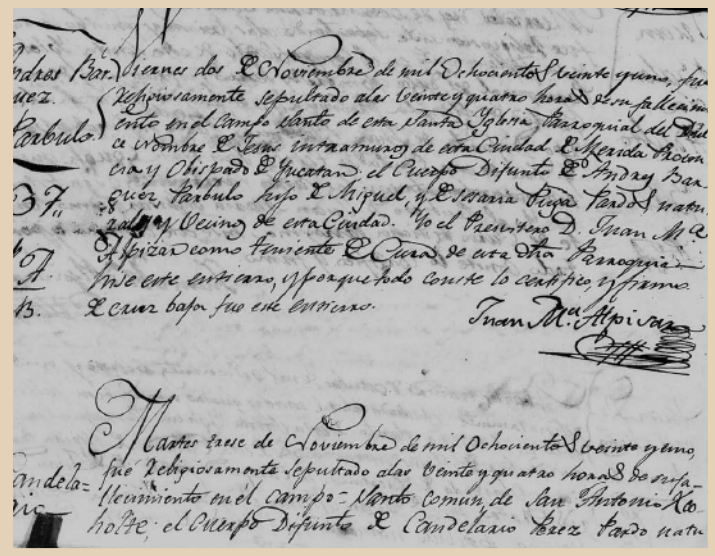 Andres Bar
quez.
Parbulo.
37,,
A.
B.
Viernes dos de Noviembre de mil Ochocientos veinte y uno, fue
Religiosamente sepultado alas veinte y quatro horas de su fallecimi
ento en el campo santo de esta Santa Yglesia Parroquial del Dul
ce Nombre de Jesus intramuros de esta Ciudad de Merida Provin
cia y Obispado de Yucatan: el Cuerpo Difunto de Andres Bar
quez, Parbulo hijo de Miguel, y de Pardos natu
rales y Vecinos de esta Ciudad. Yo el Presvitero D. Juan Mª
Alpizar como teniente de Cura de esta dha Parroquia
hise este entierro, y porque todo conste lo certifico, y firmo
de cruz baja fue este entierro.
Juan Mª Alpisar
Candela=
rio
Martes trese de Noviembre de mil Ochocientos veinte y uno,
fue Religiosamente sepultado alas veinte y quatro horas de su fa-
llecimiento en el campo=santo comun, de San Antonio Xco
holte; el Cuerpo Difunto de Candelario Perez Pardo natu